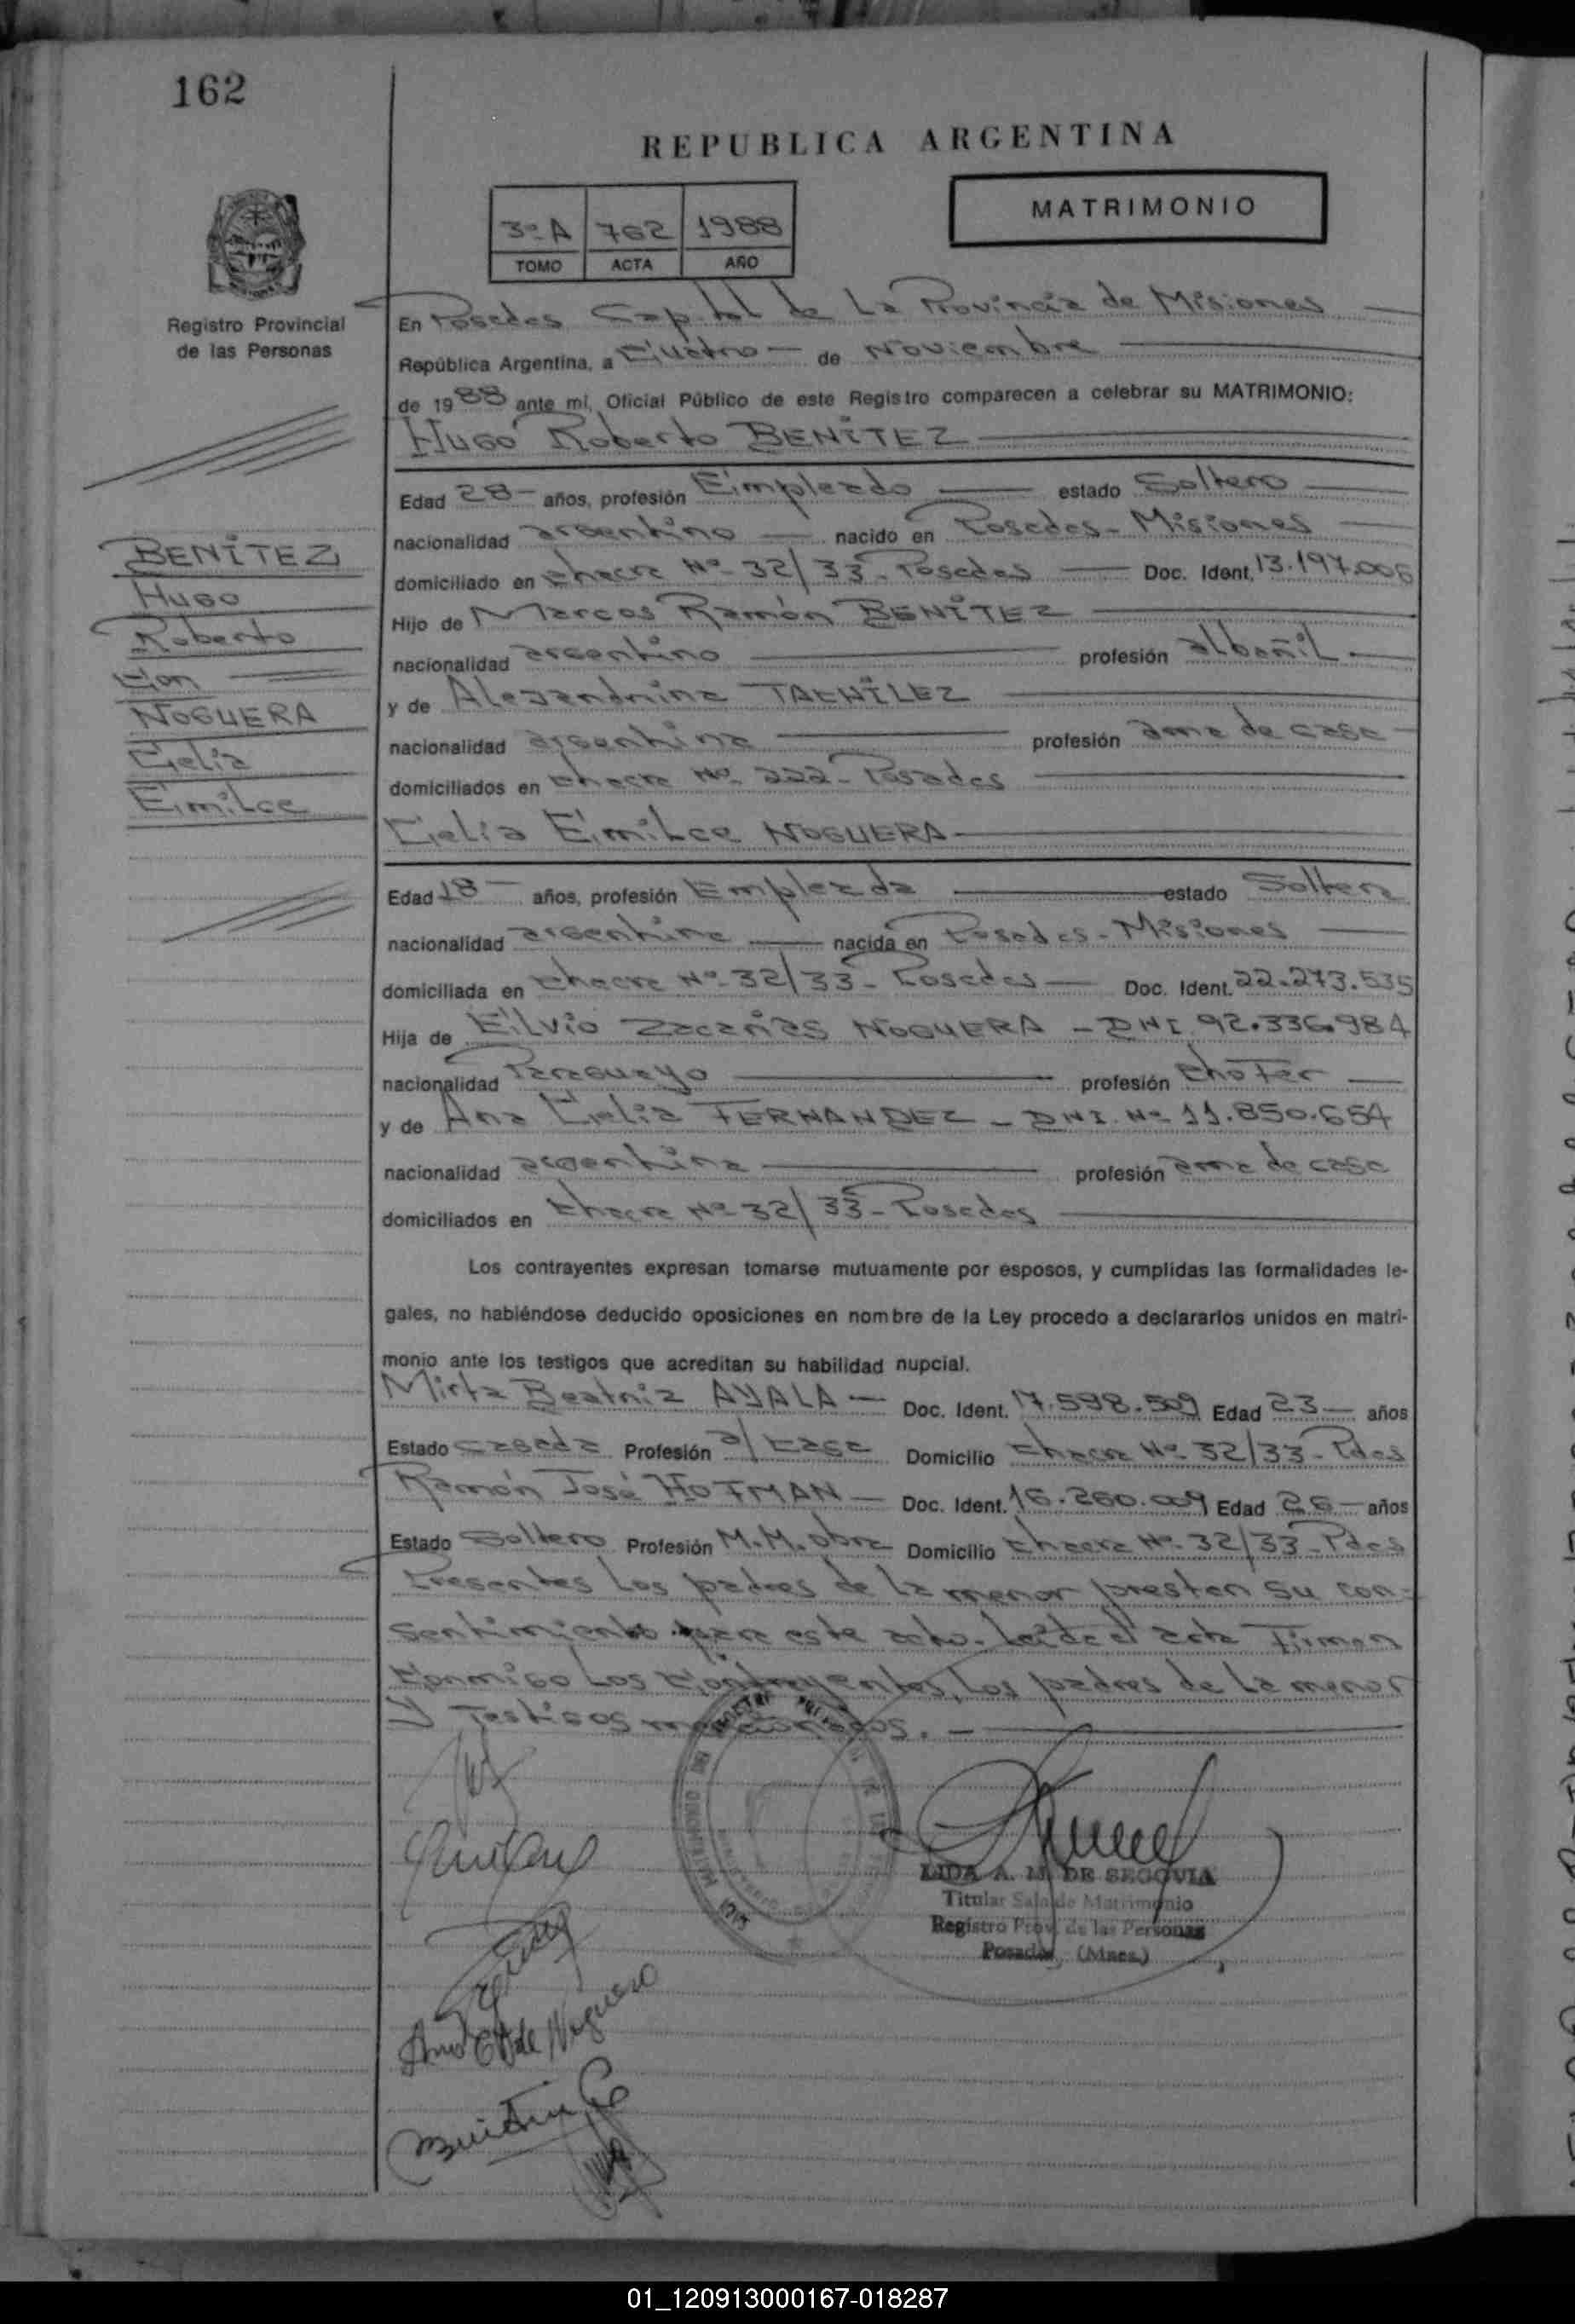 162
REPUBLICA ARGENTINA
MATRIMONIO
3º A 762 1988
TOMO ACTA AÑO
Registro Provincial
de las Personas
En Posadas Capital de La Provincia de Misiones
República Argentina, a Cuatro de Noviembre
de 1988 ante mi, Oficial Público de este Registro comparecen a celebrar su MATRIMONIO:
Hugo Roberto BENITEZ
Edad 28 años, profesión Empleado estado Soltero
nacionalidad argentino nacido en Posadas - Misiones
domiciliado en chacra Nº 32/33 - Posadas Doc. Ident. 13.197.006
Hijo de Marcos Ramón BENITEZ
nacionalidad argentino profesión albañil
y de Alejandrina
nacionalidad argentina profesión ama de casa
domiciliados en chacra Nº 222 - Posadas
Celia Emilce NOGUERA
BENITEZ
Hugo
Roberto
Con
NOGUERA
Celia
Emilce
Edad 18 años, profesión Empleada estado Soltera
nacionalidad argentina nacida en Posadas - Misiones
domiciliada en chacra Nº 32/33 - Posadas Doc. Ident. 22.273.535
Hija de Elvio Zacarías NOGUERA - DNI. 92.336.984
nacionalidad Paraguayo profesión chofer
y de Ana Celia FERNANDEZ - DNI. Nº 11.850.654
nacionalidad argentina profesión ama de casa
domiciliados en chacra Nº 32/33 - Posadas
Los contrayentes expresan tomarse mutuamente por esposos, y cumplidas las formalidades le-
gales, no habiéndose deducido oposiciones en nombre de la Ley procedo a declararlos unidos en matri-
monio ante los testigos que acreditan su habilidad nupcial.
Mirta Beatriz AYALA Doc. Ident. 17.598.509 Edad 23 años
Estado casada Profesión a/casa Domicilio chacra Nº 32/33 - Pdas
Ramón José HOFMAN Doc. Ident. 16.260.009 Edad 26 años
Estado Soltero Profesión M.M. obra Domicilio chacra Nº 32/33 - Pdas
Presentes Los padres de La menor prestan su con-
sentimiento para este acto. Leída el acta Firman
Conmigo Los Contrayentes, Los padres de La menor
y Testigos mencionados.
LIDA A. M. DE SEGOVIA
Titular Sala de Matrimonio
Registro Prov. de las Personas
Posadas (Mnes.)
Ana de Noguera
01_120913000167-018287